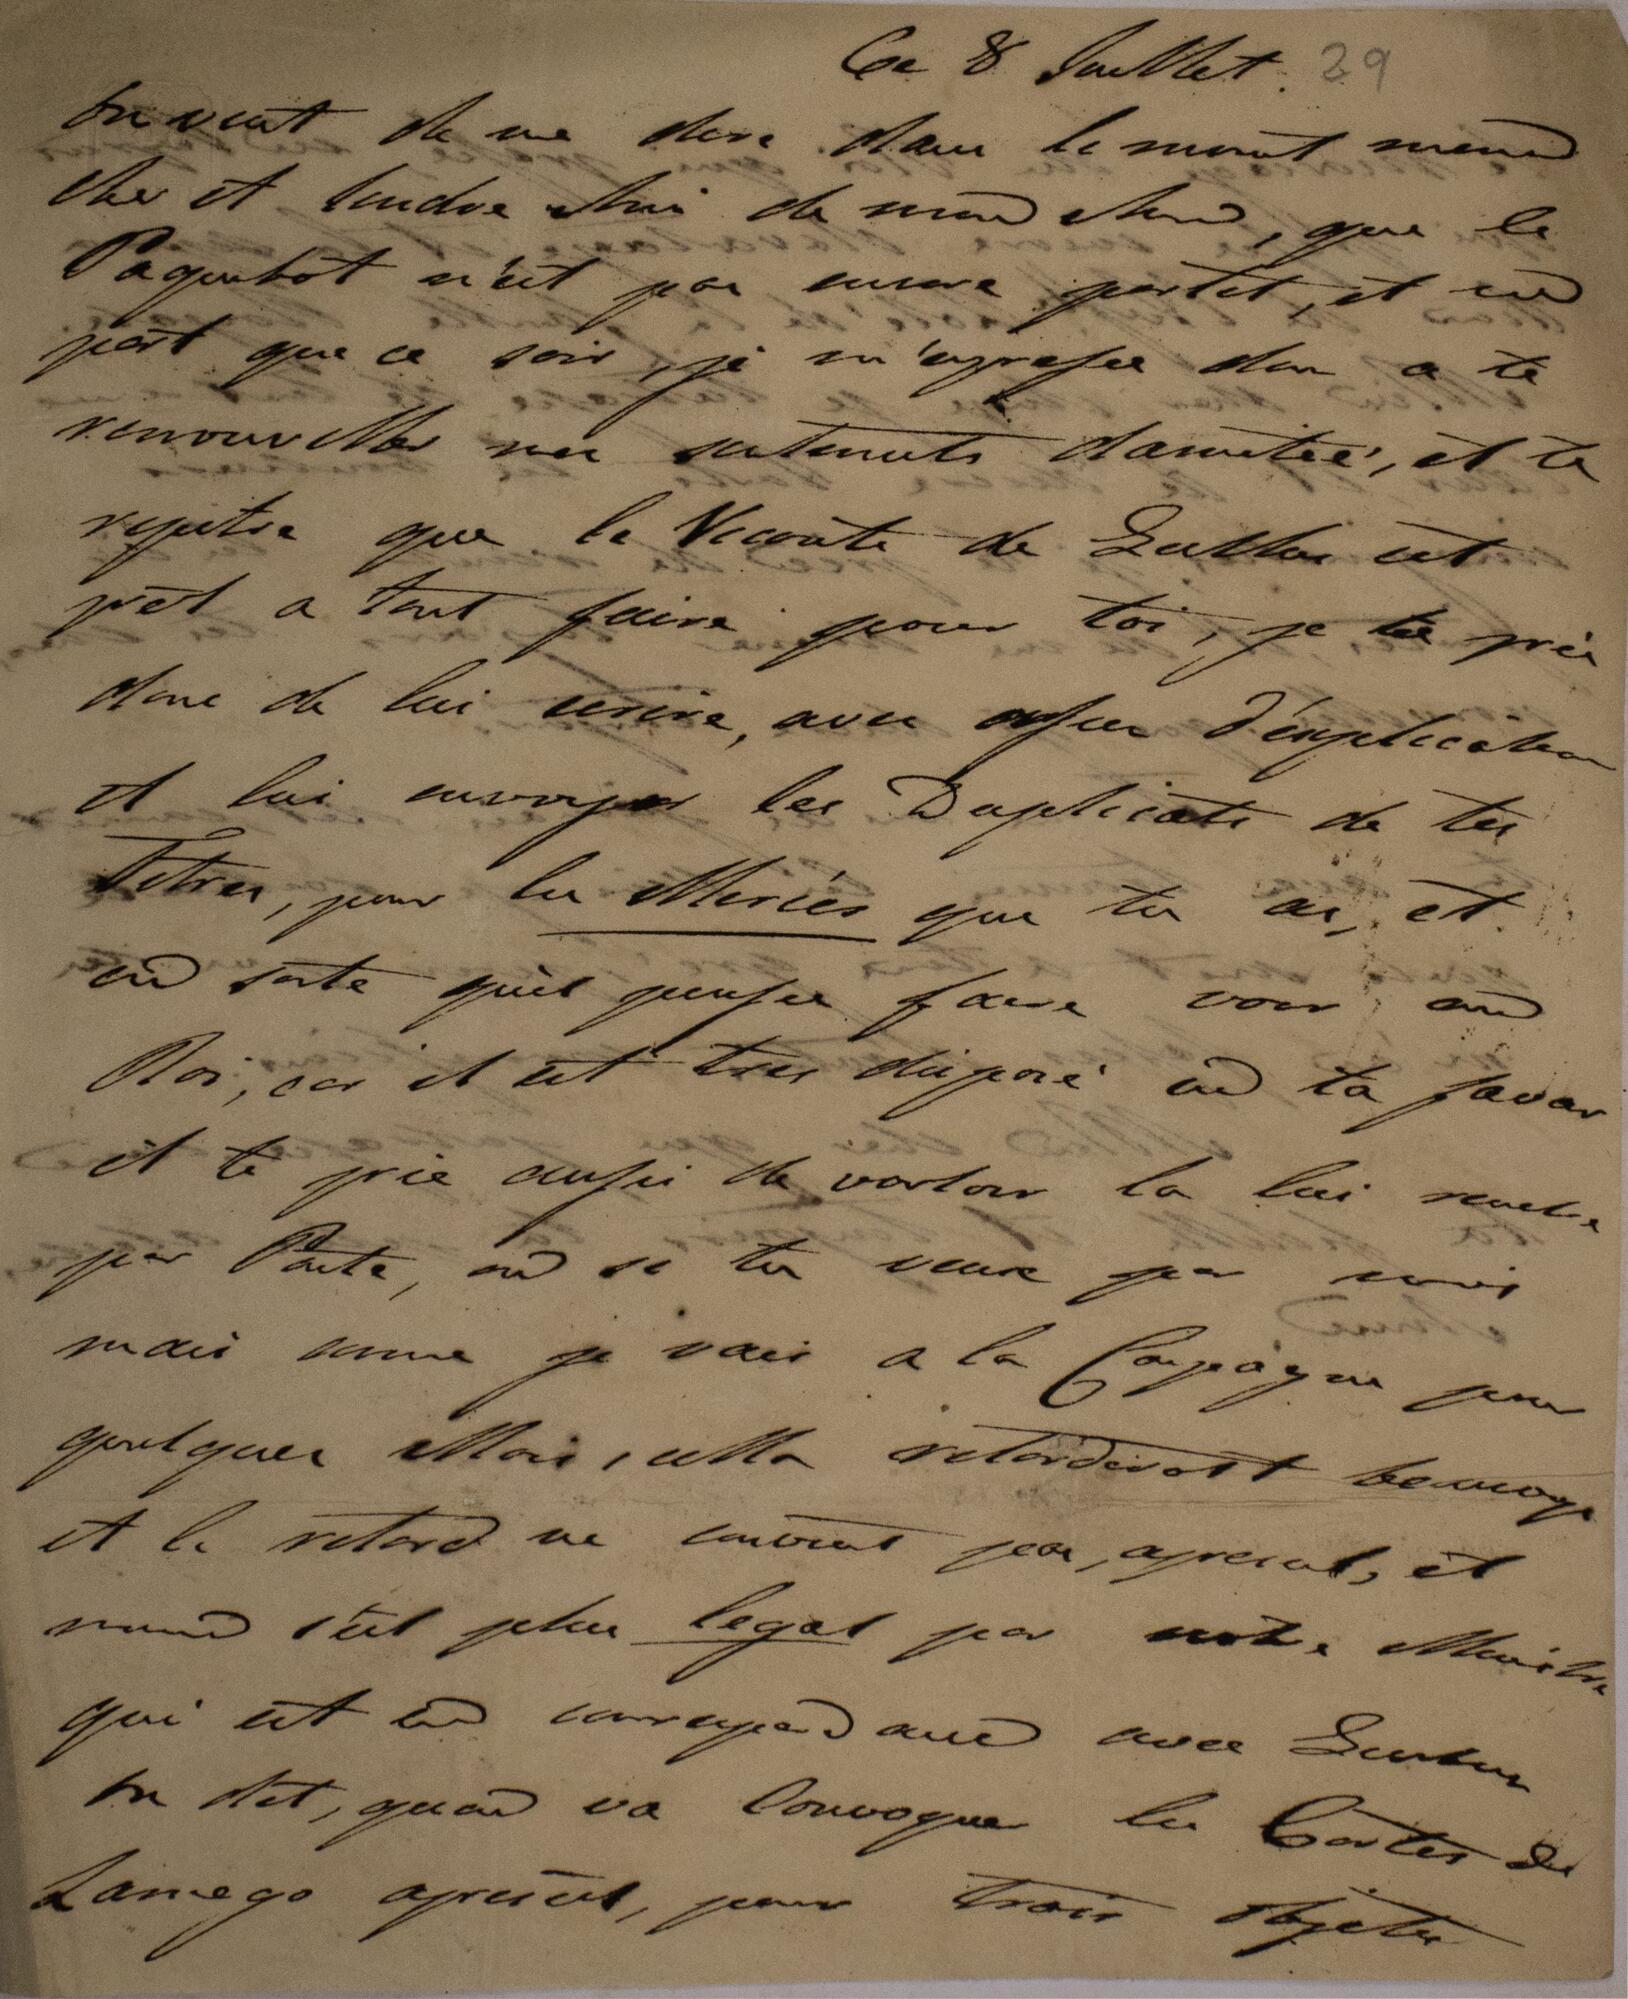 Ce 8 Juillet. 39
On vient de me dire dans le momt meme
cher et tendre Ami de mon Ame, que le
Paquebot n'est pas encore partit, et ne
part que ce soir, je m'empresse donc a te
renouveller mes sentiments d'amitiée, et te
repettre que le Viconte de Quellus est
prêt a tout faire pour toi, je te prie
donc de lui ecrire, avec assez d'explication
et lui envoyer les Duplicats de tes
Titres, pour les Mercies que tu as, et
en sorte qu'il puisse faire voir au
Roi, car il est tres disposé en ta faveur
et te prie aussi de vouloir la lui remetre
par Poste, ou si tu veux par moi
mais comme je vais a la Campagne pour
quelques Mois, cella retarderoit beaucoup
et le retard ne convient pas, apresent, et
meme s'est plus legal par notre Ministre
qui est en correspondance avec
on dit, quon va Convoquer les Cortes de
Lamego apresent, pour trois objetts